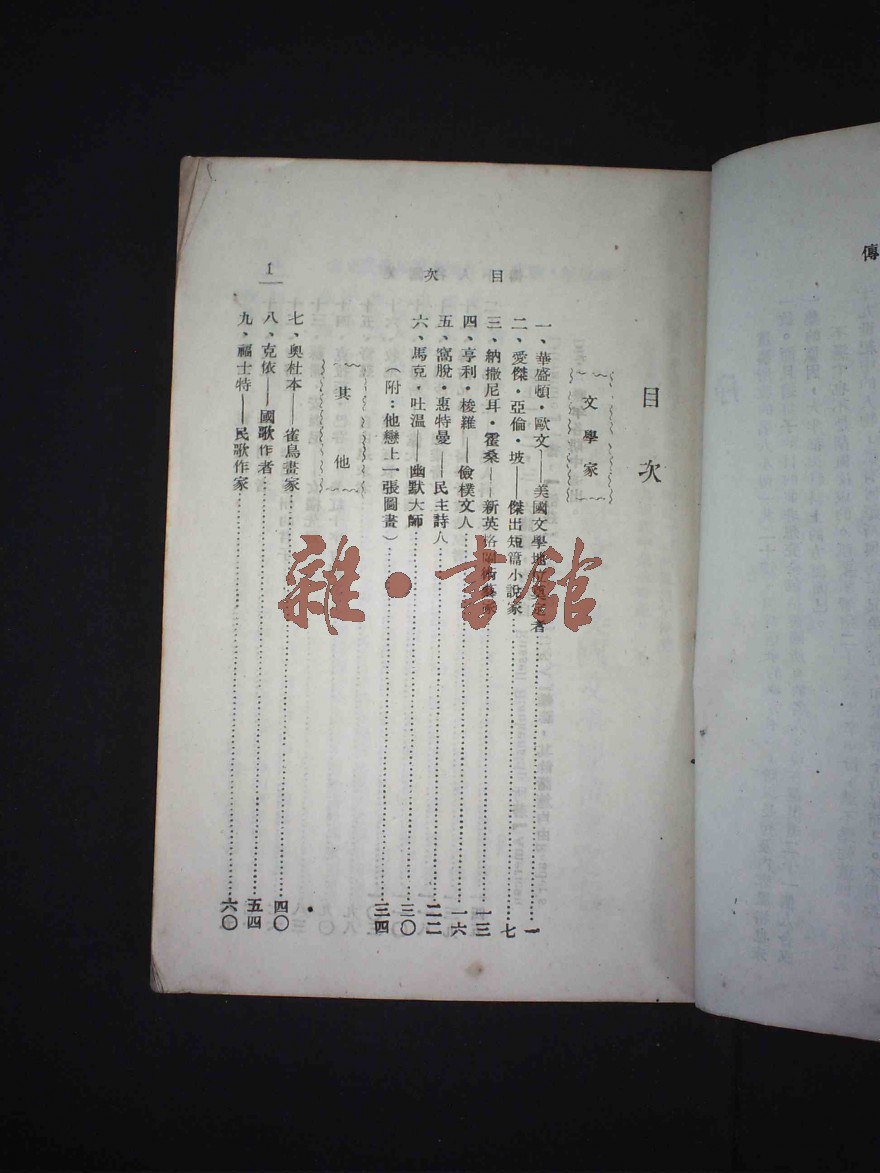 目次
文學家
一、華盛頓・歐文——美國文學地位奠定者……一
二、愛傑・亞倫・坡——傑出短篇小說家……七
三、納撒尼耳・霍桑——新英格蘭術藝家……一三
四、亨利・梭羅——儉樸文人……一六
五、窩脫・惠特曼——民主詩人……二二
六、馬克・吐温——幽默大師……三〇
（附：他戀上一張圖畫）……三四
其他
七、奥杜本——雀鳥畫家……四〇
八、克依——國歌作者……五四
九、福士特——民歌作家……六〇
目次
1
傳
雜・書館